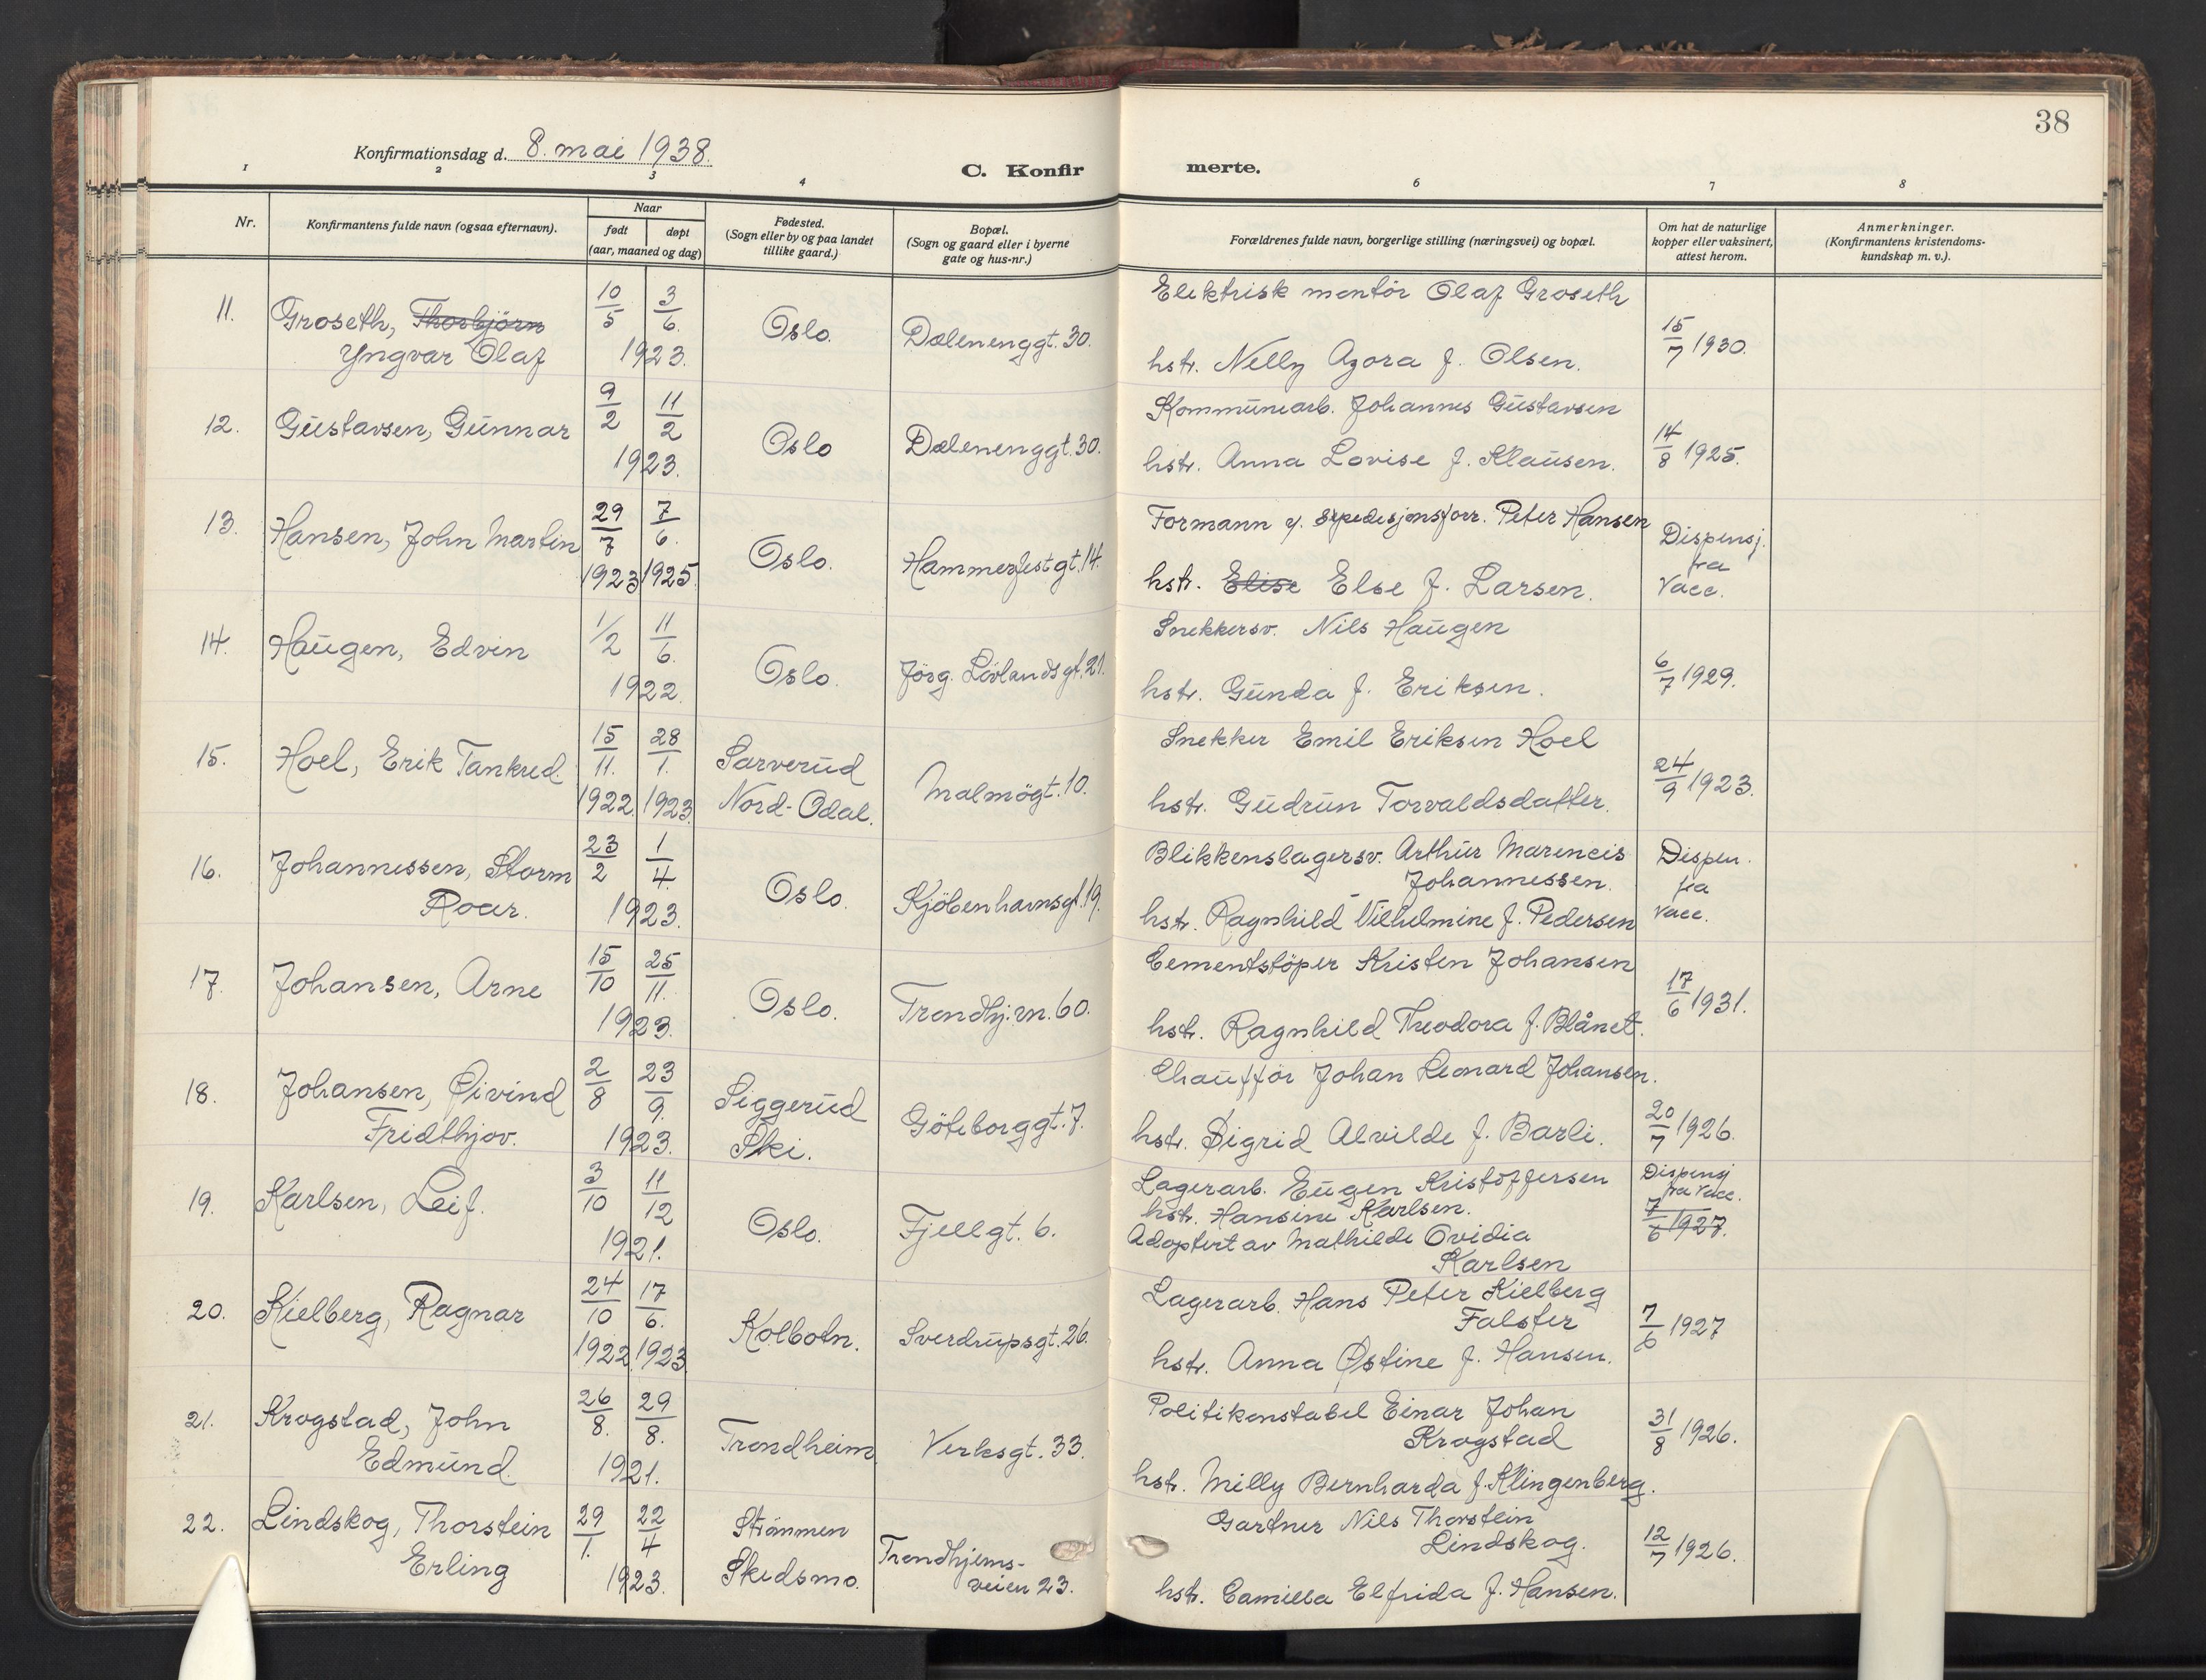 38
Konfirmationsdag d. 8. mai 1938.
C. Konfir merte.
1 2 3 4 6 7 8
Nr.
Konfirmantens fulde navn (ogsaa efternavn).
Naar
født døpt
(aar, maaned og dag)
Fødested.
(Sogn eller by og paa landet
tillike gaard.)
Bopæl.
(Sogn og gaard eller i byerne
gate og hus-nr.)
Forældrenes fulde navn, borgerlige stilling (næringsvei) og bopæl.
Om hat de naturlige
kopper eller vaksinert,
attest herom.
Anmerkninger.
(Konfirmantens kristendoms-
kundskap m. v.).
11. Groseth, Thorbjörn
Yngvar Olaf
10/5 3/6.
1923.
Oslo.
Dælenenggt. 30.
Elektrisk montör Olaf Groseth
hstr. Nelly Agora f. Olsen.
15/7 1930.
12. Gustavsen, Gunnar
9/2 11/2
1923.
Oslo
Dælenenggt. 30.
Kommunearb. Johannes Gustavsen
hstr. Anna Lovise f. Klausen.
14/8 1925.
13. Hansen, John Martin
29/7 7/6.
1923 1925.
Oslo.
Hammerfestgt. 14.
Formann v. Expedisjonsforr. Peter Hansen
hstr. Elise Else f. Larsen.
Dispensj.
fra
Vacc.
14. Haugen, Edvin
1/2 11/6.
1922.
Oslo.
Jörg. Lövlandsgt. 21.
Snekkersv. Nils Haugen
hstr. Gunda f. Eriksen.
6/7 1929.
15. Hoel, Erik Tankred.
15/11. 28/1.
1922. 1923.
Sarverud
Nord-Odal.
Malmögt. 10.
Snekker Emil Eriksen Hoel
hstr. Gudrun Torvaldsdatter.
24/9 1923.
16. Johannessen, Storm
Roar.
23/2 1/4.
1923.
Oslo.
Kjöbenhavnsgt. 19.
Blikkenslagersv. Arthur Marencis
Johannessen.
hstr. Ragnhild Vilhelmine f. Pedersen
Dispen.
fra
vacc.
17. Johansen, Arne
15/10 25/11.
1923.
Oslo.
Trondhj.vn. 60.
Cementstöper Kristen Johansen
hstr. Ragnhild Theodora f. Blånet.
17/6 1931.
18. Johansen, Øivind
Fridthjov.
2/8 23/9.
1923.
Siggerud
Ski.
Göteborggt. 7.
Chauffør Johan Leonard Johansen.
hstr. Sigrid Alvilde f. Barli.
20/7 1926.
19. Karlsen, Leif.
3/10 11/12
1921.
Oslo.
Fjellgt. 6.
Lagerarb. Eugen Kristoffersen
hstr. Hansine Karlsen.
Adoptert av Mathilde Ovidia
Karlsen
Dispensj
fra Vacc.
7/6 1927.
20. Kielberg, Ragnar
24/10 17/6.
1922. 1923
Kolbotn.
Sverdrupsgt. 26.
Lagerarb. Hans Peter Kielberg
Falster
hstr. Anna Østine f. Hansen.
7/6 1927
21. Krogstad, John
Edmund.
26/8. 29/8.
1921.
Trondheim
Verksgt. 33.
Politikonstabel Einar Johan
Krogstad
hstr. Milly Bernharda f. Klingenberg.
31/8 1926.
22. Lindskog, Thorstein
Erling
29/1. 22/4
1923.
Strömmen
Skedsmo.
Trondhjems-
veien 23.
Gartner Nils Thorstein
Lindskog.
hstr. Camilla Elfrida f. Hansen.
12/7 1926.